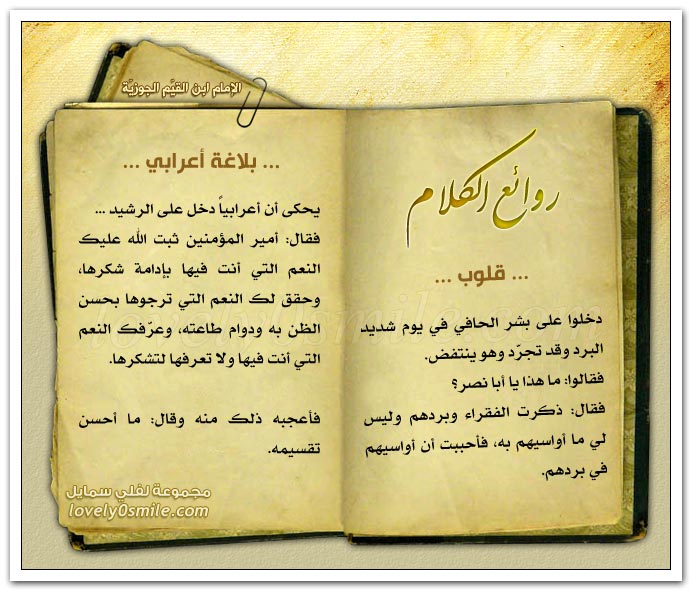 الإمام ابن القيّم الجوزيّة
روائع الكلام
... قلوب ...
دخلوا على بشر الحافي في يوم شديد
البرد وقد تجرّد وهو ينتفض.
فقالوا: ما هذا يا أبا نصر؟
فقال: ذكرت الفقراء وبردهم وليس
لي ما أواسيهم به، فأحببت أن أواسيهم
في بردهم.
... بلاغة أعرابي ...
يحكى أن أعرابياً دخل على الرشيد ...
فقال: أمير المؤمنين ثبت الله عليك
النعم التي أنت فيها بإدامة شكرها،
وحقق لك النعم التي ترجوها بحسن
الظن به ودوام طاعته، وعرّفك النعم
التي أنت فيها ولا تعرفها لتشكرها.
فأعجبه ذلك منه وقال: ما أحسن
تقسيمه.
مجموعة لفلي سمايل
lovely0smile.com
lovely0smile.com